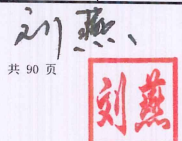 刘燕
共 90 页
刘燕